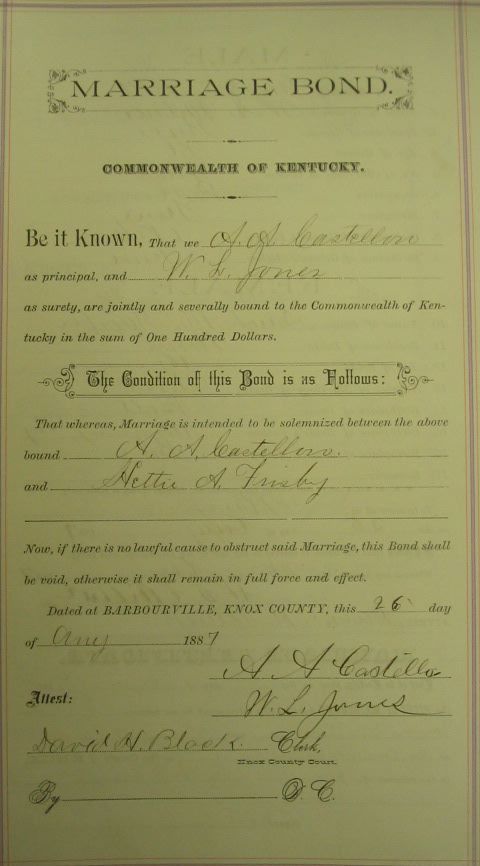 MARRIAGE BOND.
COMMONWEALTH OF KENTUCKY.
Be it Known, That we A. A. Castellow
as principal, and W. L. Jones
as surety, are jointly and severally bound to the Commonwealth of Ken-
tucky in the sum of One Hundred Dollars.
The Condition of this Bond is as Follows:
That whereas, Marriage is intended to be solemnized between the above
bound A. A. Castellow.
and Hettie A. Frisby
Now, if there is no lawful cause to obstruct said Marriage, this Bond shall
be void, otherwise it shall remain in full force and effect.
Dated at BARBOURVILLE, KNOX COUNTY, this 26 day
of Aug 1887
A A Castello
Attest: W. L. Jones
David H. Black. Clerk,
Knox County Court.
By D. C.